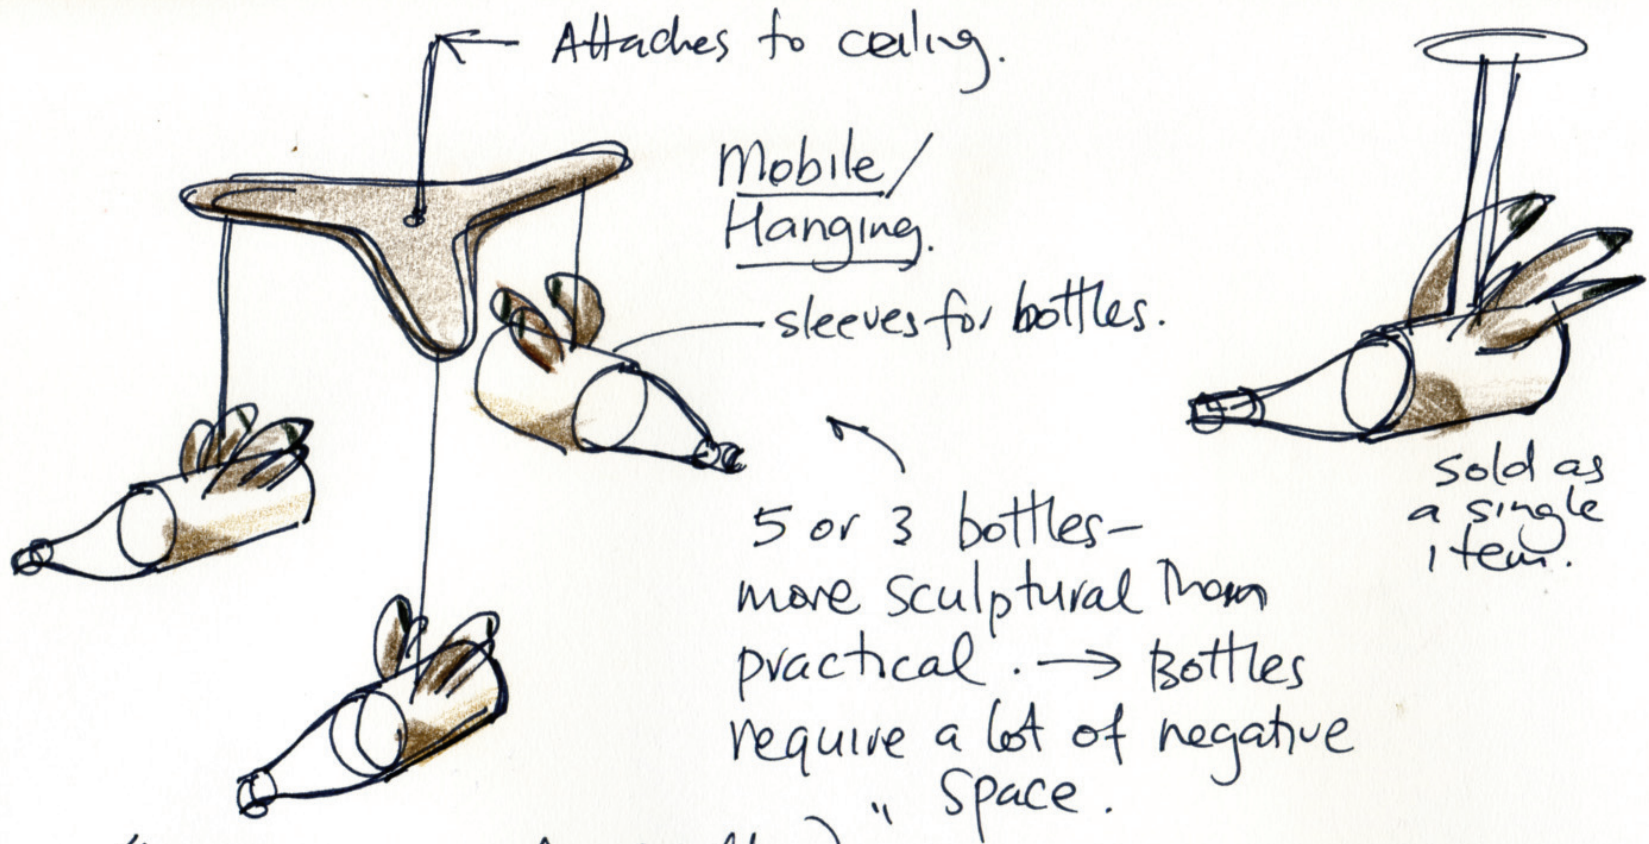 Attaches to ceiling.
Mobile/
Hanging.
sleeves for bottles.
5 or 3 bottles-
more sculptural than
practical. → Bottles
require a lot of negative
space.
sold as
a single
item.